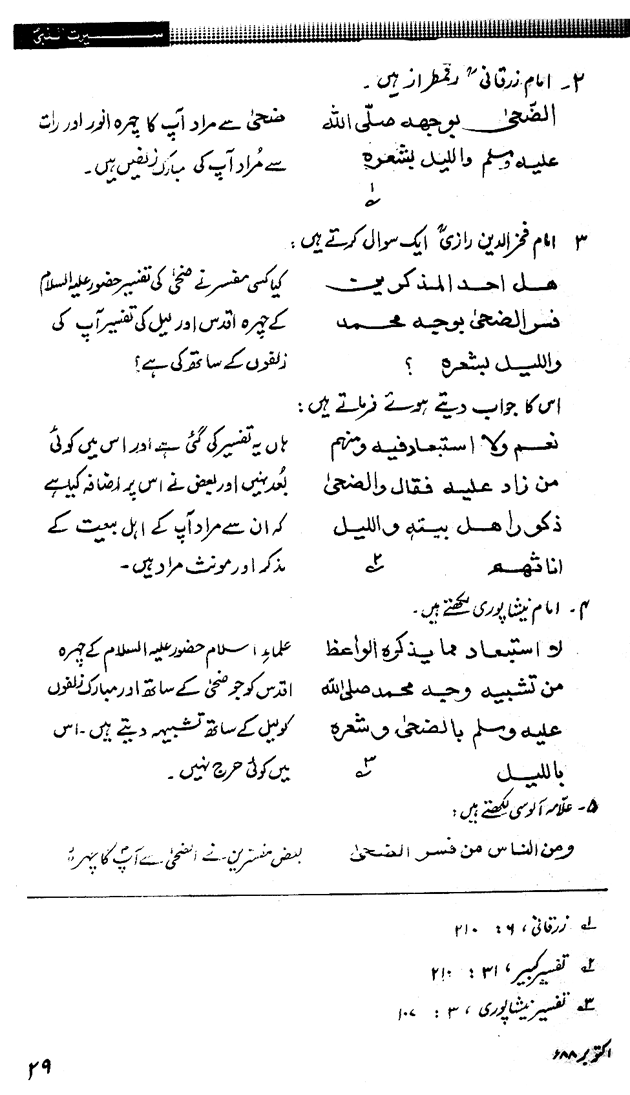 سیرت النبیؐ
۲۔ امام زرقانیؒ رقمطراز ہیں۔
الضّحیٰ بوجھه صلّی اللہ
علیه وسلم واللیل بشعرہ
۱ے
ضحیٰ سے مراد آپ کا چہرہ انور اور رات
سے مُراد آپ کی مبارک زلفیں ہیں۔
۳ امام فخرالدین رازیؒ ایک سوال کرتے ہیں:
ھل احد المذکورین
فسر الضحیٰ بوجه محمد
واللیل بشعرہ ؟
کیا کسی مفسر نے ضحیٰ کی تفسیر حضور علیہ السلام
کے چہرہ اقدس اور لیل کی تفسیر آپ کی
زلفوں کے ساتھ کی ہے؟
اس کا جواب دیتے ہوئے فرماتے ہیں:
نعم ولا استبعاد فیه ومنہم
من زاد علیه فقال والضحیٰ
ذکور اھل بیته واللیل
اناثھم ۲ے
ہاں یہ تفسیر کی گئی ہے اور اس میں کوئی
بُعد نہیں اور بعض نے اس پر اضافہ کیا ہے
کہ ان سے مراد آپ کے اہل بیت کے
مذکر اور مونث مراد ہیں۔
۴۔ امام نیشاپوری لکھتے ہیں۔
لا استبعاد مما یذکرہ الواعظ
من تشبیه وجه محمد صلی اللہ
علیه وسلم بالضحیٰ وشعرہ
باللیل ۳ے
علماءِ اسلام حضور علیہ السلام کے چہرہ
اقدس کو جو ضحیٰ کے ساتھ اور مبارک زلفوں
کو لیل کے ساتھ تشبیہہ دیتے ہیں۔ اس
میں کوئی حرج نہیں۔
۵۔ علّامہ آلوسی لکھتے ہیں:
ومن الناس من فسر الضحیٰ
بعض مفسرین نے الضحیٰ سے آپؐ کا چہرہ
۱ے زرقانی، ۶: ۲۱۰
۲ے تفسیر کبیر، ۳۱: ۲۱۰
۳ے تفسیر نیشاپوری، ۳: ۱۰۷
اکتوبر ۸۸ء
۲۹